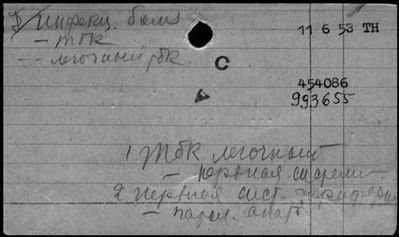 Инфекц. бол.
11 6 53 TH
– тбк
-- легочный тбк.
C
454086
993655
1 Тбк легочный
– нервная система
2 Нервная сист. периферич
–